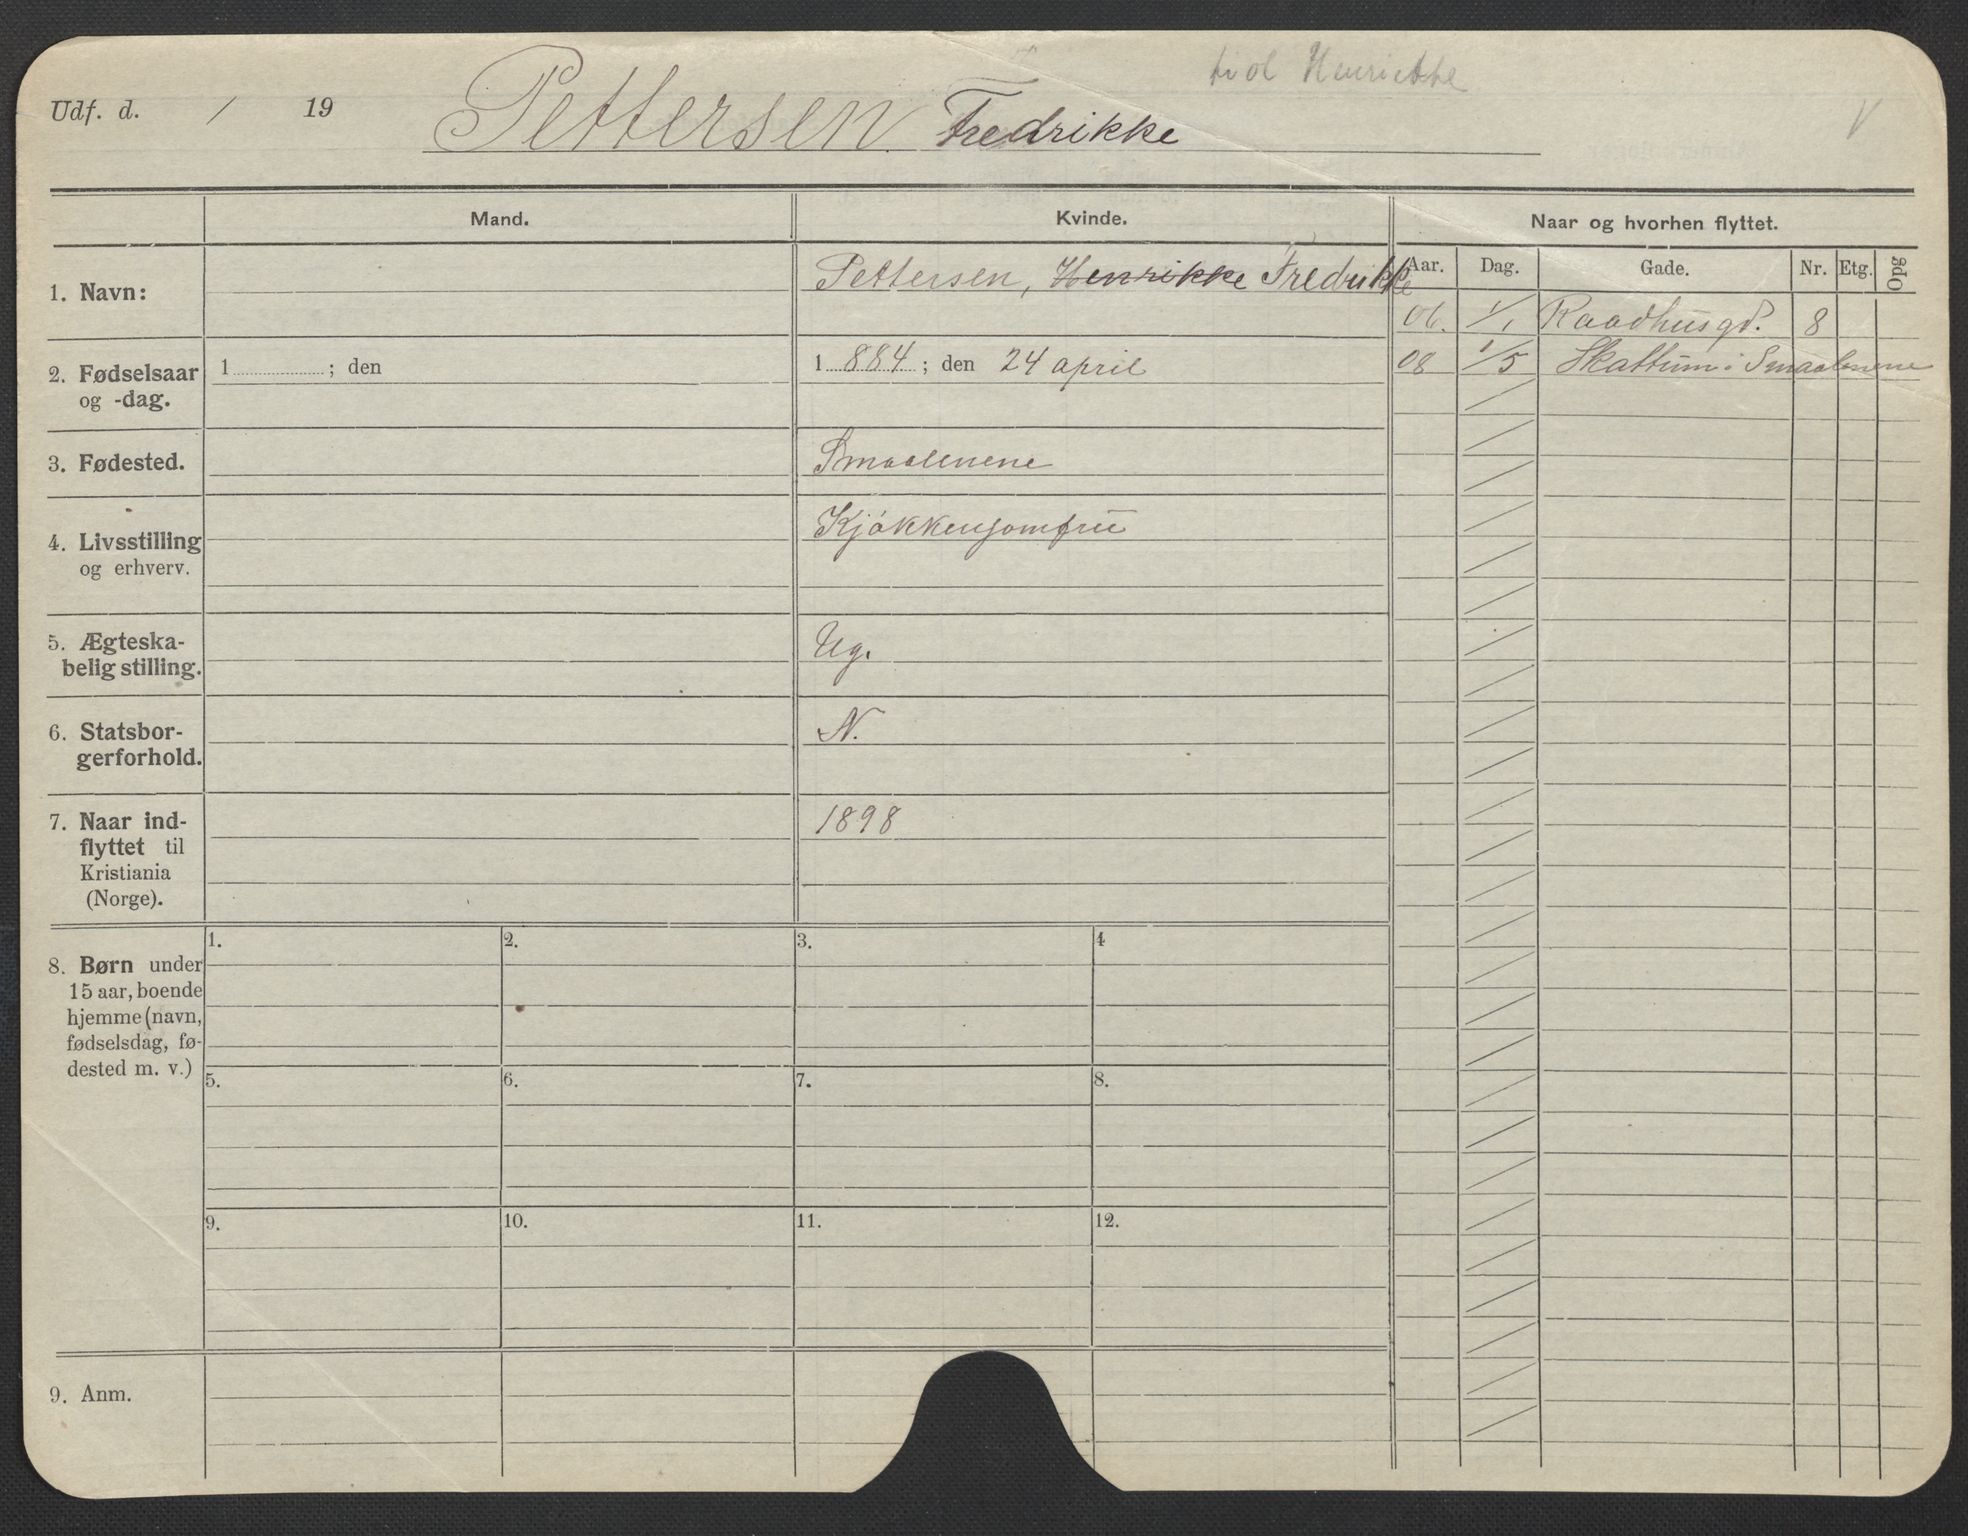 Henriette
Udf. d. / 19 Pettersen Fredrikke V
Mand. Kvinde. Naar og hvorhen flyttet.
Aar. Dag. Gade. Nr. Etg. Opg
1. Navn: Pettersen, Henrikke Fredrikke
06. 1/1 Raadhusgd. 8
08 1/5 Skattum i Smaalenene
2. Fødselsaar 1 ; den 1 884 ; den 24 april
og -dag.
3. Fødested. Smaalenene
4. Livsstilling Kjøkkenjomfru
og erhverv.
5. Ægteska- Ug.
belig stilling.
6. Statsbor- N.
gerforhold.
7. Naar ind- 1898
flyttet til
Kristiania
(Norge).
1. 2. 3. 4
8. Børn under
15 aar, boende
hjemme (navn,
fødselsdag, fø-
dested m. v.)
5. 6. 7. 8.
9. 10. 11. 12.
9. Anm.